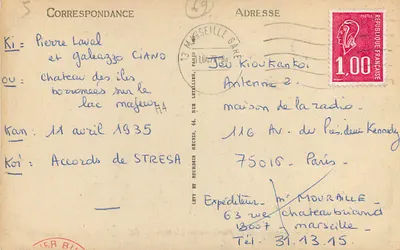 CORRESPONDANCE
ADRESSE
5
29
13 MARSEILLE GARE
REPUBLIQUE FRANÇAISE
POSTES
1,00
Ki : Pierre Laval
et galeazzo CIANO
OU : chateau des iles
borromées sur le
lac majeur
Kan : 11 avril 1935
Koi : Accords de STRESA
Jeu KiouKankoi
Antenne 2.
maison de la radio.
116 Av. du Président Kennedy
75016 - Paris.
Expéditeur - Mr MOURAILLE
63 rue chateaubriand
13007 - marseille
Tél. 31.13.15.